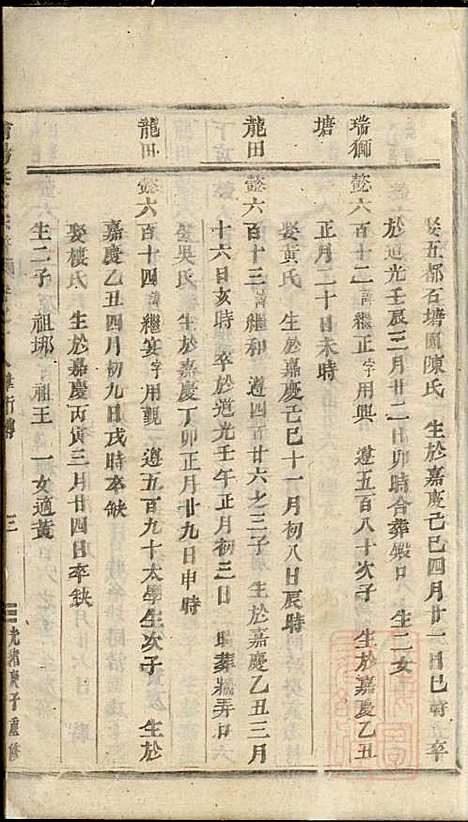 娶五都石塘園陳氏 生於嘉慶己巳四月廿一日巳時 卒
於道光壬辰三月廿二日卯時合葬 口 生二女
瑞獅塘 懿六百十二 諱繼正 字用興 遵五百八十次子 生於嘉慶乙丑
正月二十日未時
娶黃氏 生於嘉慶己巳十一月初八日辰時
龍田 懿六百十三 諱繼和 遵四百廿六之三子 生於嘉慶乙丑三月
十六日亥時 卒於道光壬午正月初三日 葬 弄口
娶吳氏 生於嘉慶丁卯正月廿九日申時
龍田 懿六百十四 諱繼宴 字用觀 遵五百九十太學生次子 生於
嘉慶乙丑四月初九日戌時卒缺
娶樓氏 生於嘉慶丙寅三月廿四日卒缺
生二子 祖琊 祖王 一女適黃
行傳 三 光緒庚子重修